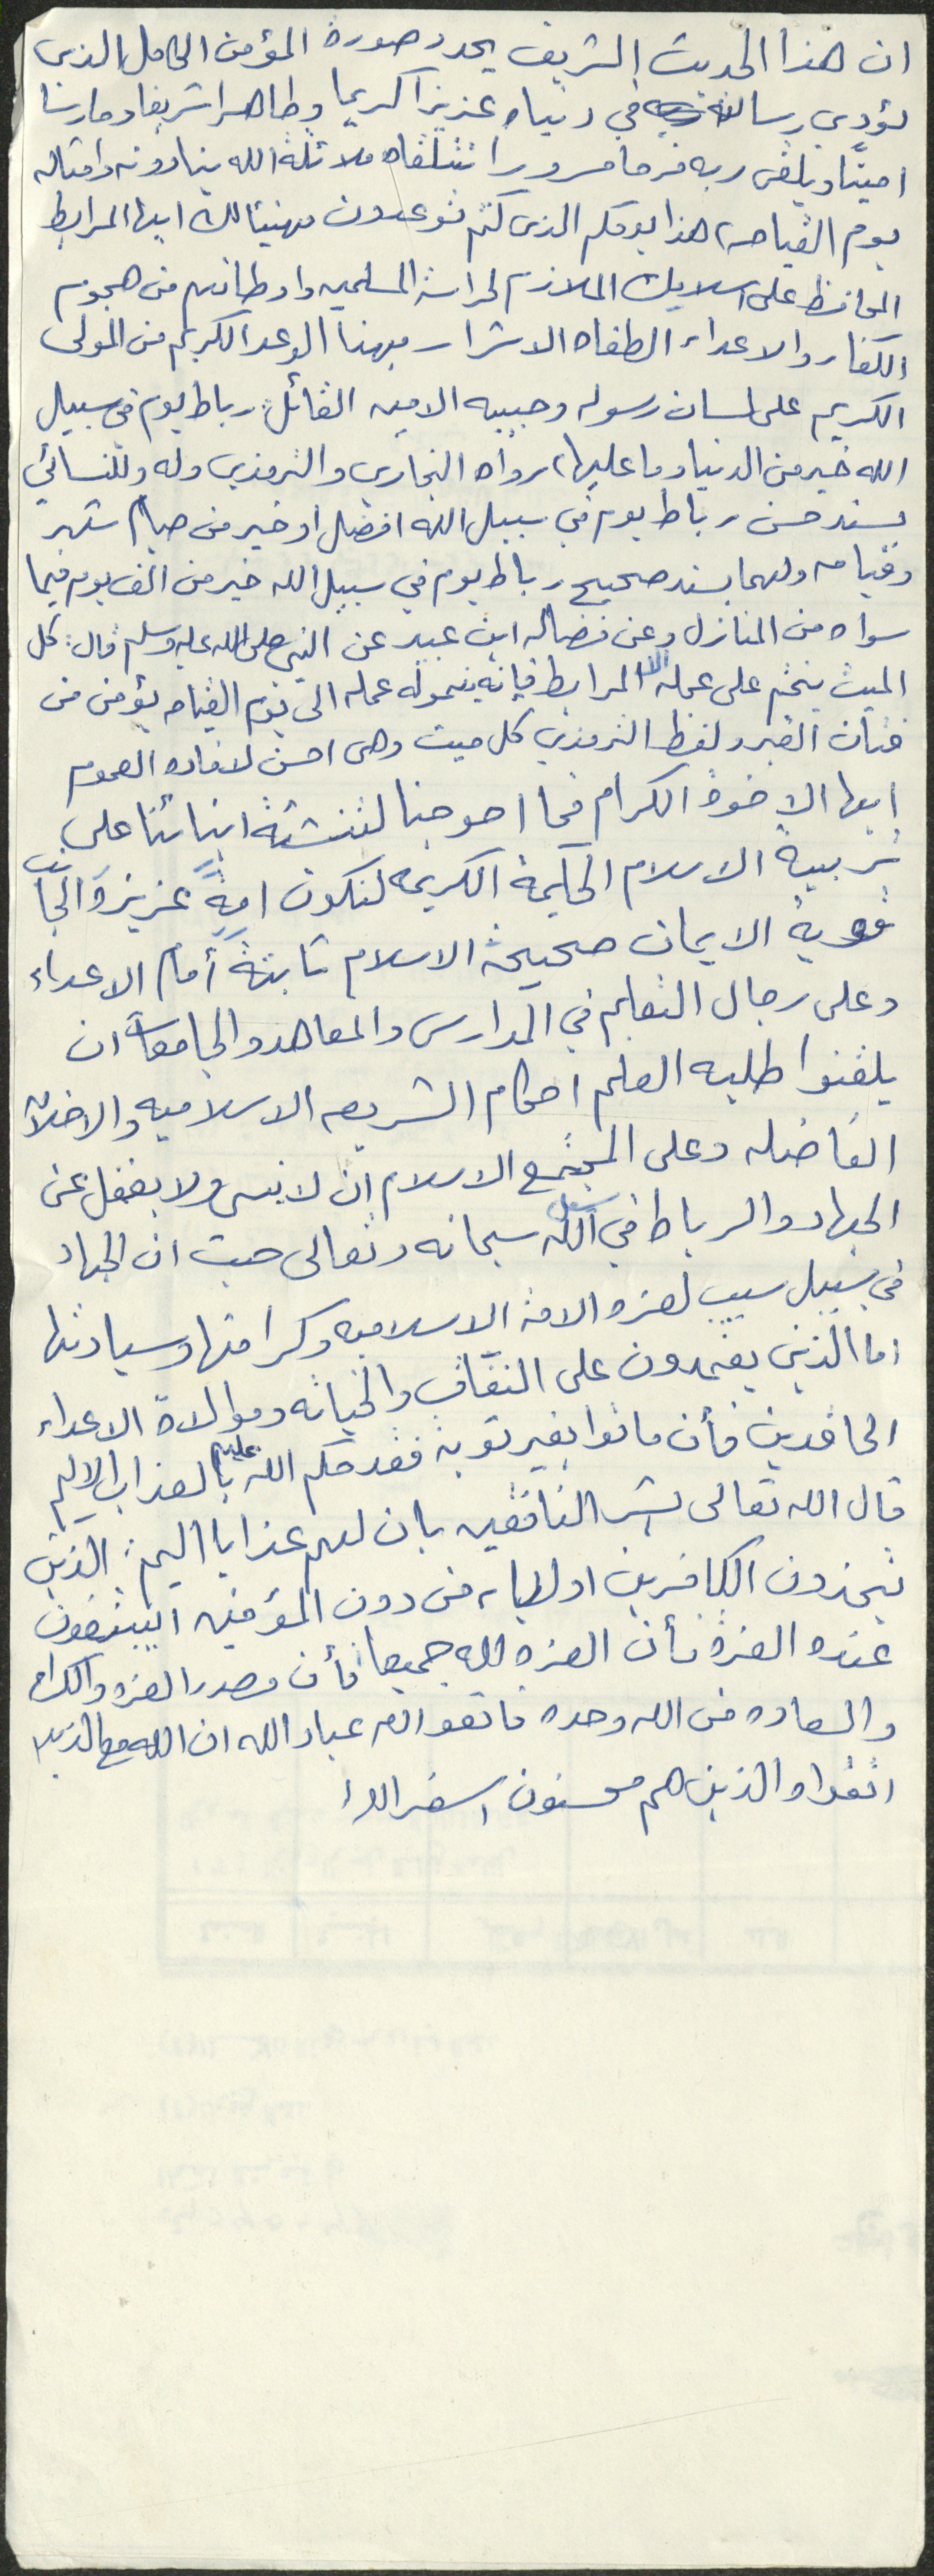 ان هذا الحديث الشريف يحدد صورة المؤمن الكامل الذي
يؤدي رسالة في دنياه عزيزا كريما وطاهرا شريفا وحارسا
امينًا ويلقى ربه فرحا مسرورا تتلقاه ملائكة الله ينادونه وامثاله
يوم القيامه، هذا يومكم الذي كنتم توعدون فهنيئا لك ايها المرابط
المحافظ على اسلامك الملازم لحراسة المسلمين واوطانهم من هجوم
الكفار والاعداء الطغاه الاشرار بهذا الوعد الكريم من المولى
الكريم على لسان رسوله وحبيبه الامين القائل: رباط يوم في سبيل
الله خير من الدنيا وما عليها، رواه البخاري والترمذي وله وللنسائي
بسند حسن رباط يوم في سبيل الله افضل او خير من صيام شهر
وقيامه ولهما بسند صحيح رباط يوم في سبيل الله خير من الف يوم فيما
سواه من المنازل وعن فضاله ابن عبيد عن النبي صلى الله عليه وسلم قال: كل
الميت يختم على عمله الا المرابط فإنه ينمو له عمله الى يوم القيامه يؤمن من
فتان القبر ولفظ الترمذي كل ميت وهي احسن لافاده العموم
ايها الاخوة الكرام فما احوجنا لتنشئة ابنائنا على
تربية الاسلام الحكيمة الكريمه لتكون امةً عزيزة الجانب
قوية الايمان صحيحة الاسلام ثابتةً أمام الاعداء
وعلى رجال التعليم في المدارس والمعاهد والجامعات ان
يلقنوا طلبه العلم احكام الشريعه الاسلاميه والاخلاق
الفاضله وعلى المجتمع الاسلام ان لا ينسى ولا يغفل عن
الجهاد والرباط في سبيل الله سبحانه وتعالى حيث ان الجهاد
في سبيل سبب لعزه الامة الاسلاميه وكرامتها وسيادتها
اما الذين يعتمدون على النفاق والخيانه وموالاة الاعداء
الحاقدين فأن ماتوا بغير توبة فقد حكم الله عليهم بالعذاب الاليم
قال الله تعالى بشر المنافقين بان لهم عذابا اليم: الذين
يتخذون الكافرين اولياء من دون المؤمنين ايبتغون
عنده العزة فأن العزه لله جميعا فأن مصدر العزه والكرامه
والسعاده من الله وحده فاتقوا الله عباد الله ان الله مع الذين
اتقوا والذين هم محسنون